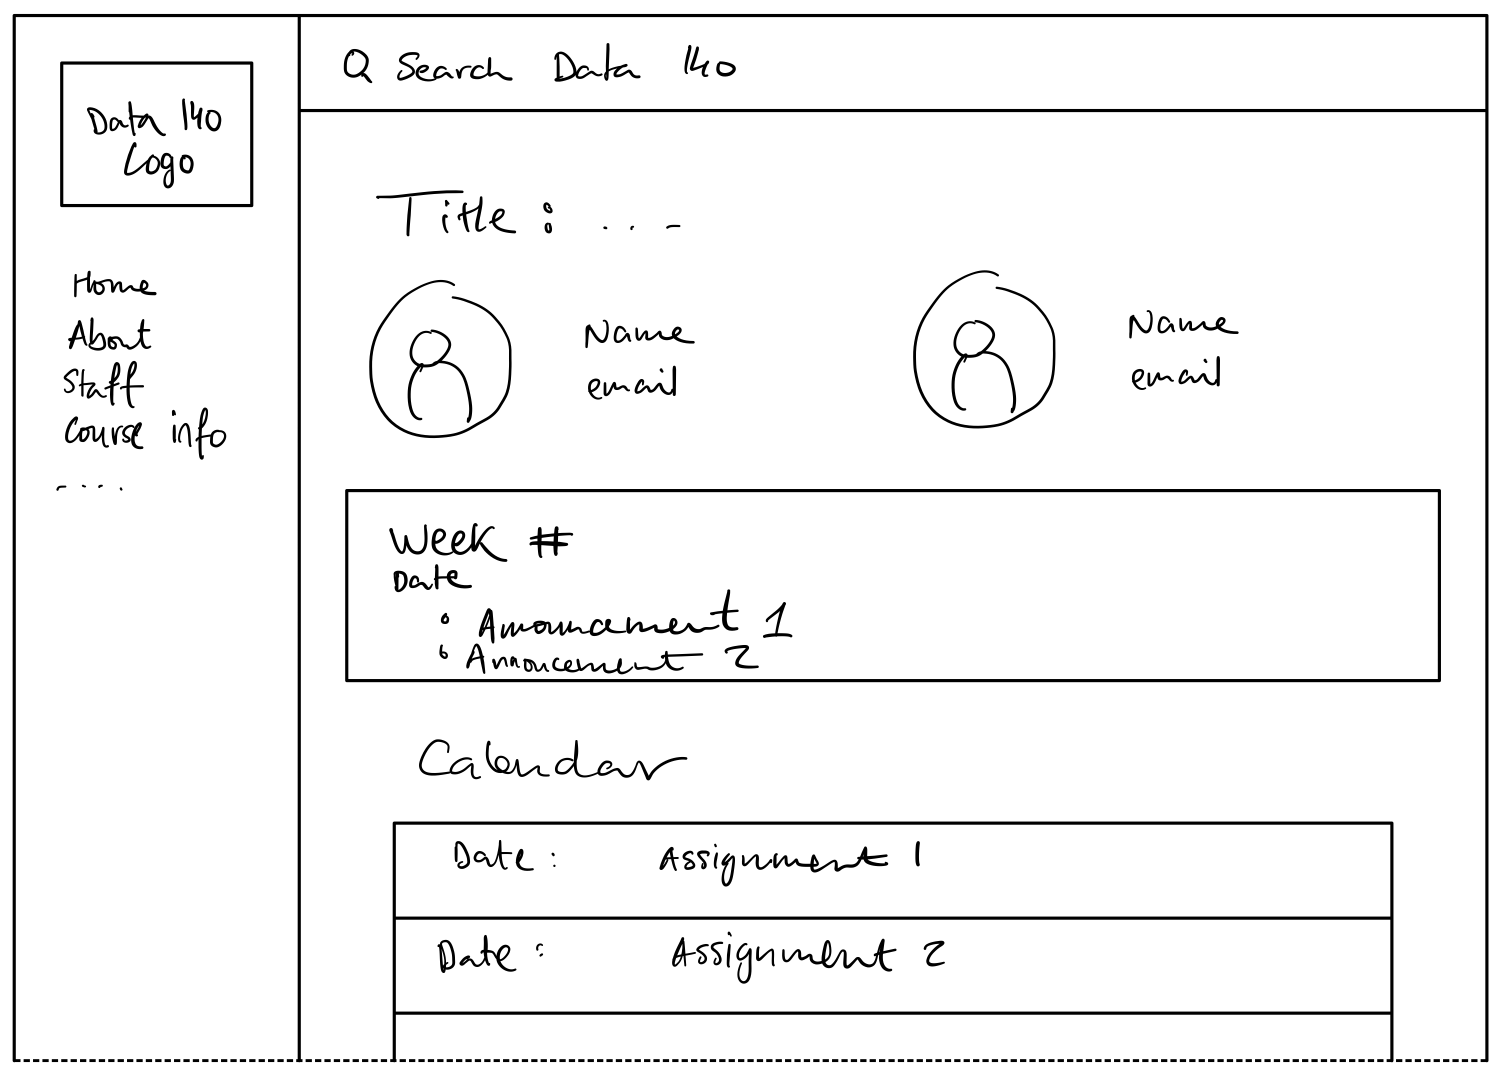 Search Data 140
Data 140
Logo
Home
About
Staff
Course info
....
Title : ...
Name
email
Name
email
Week #
Date
Announcement 1
Annoucement 2
Calendar
Date : Assignment 1
Date : Assignment 2